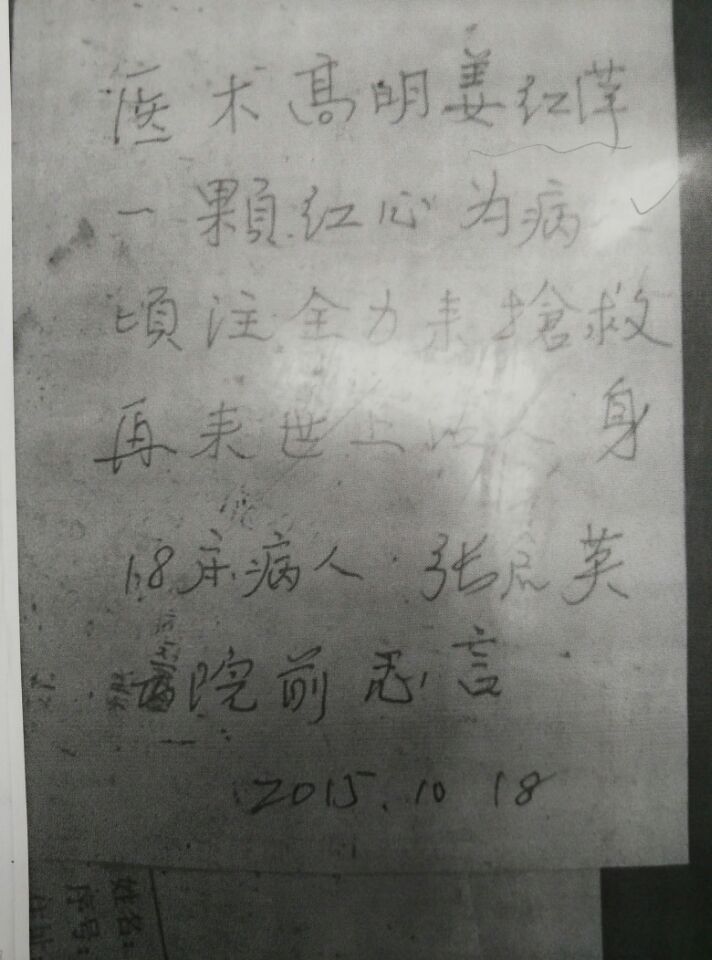 医术高明姜红萍
一颗红心为病
倾注全力来抢救
再来世上 人身
18床病人 张 英
院前 言
2015.10 18
姓名:
序号: